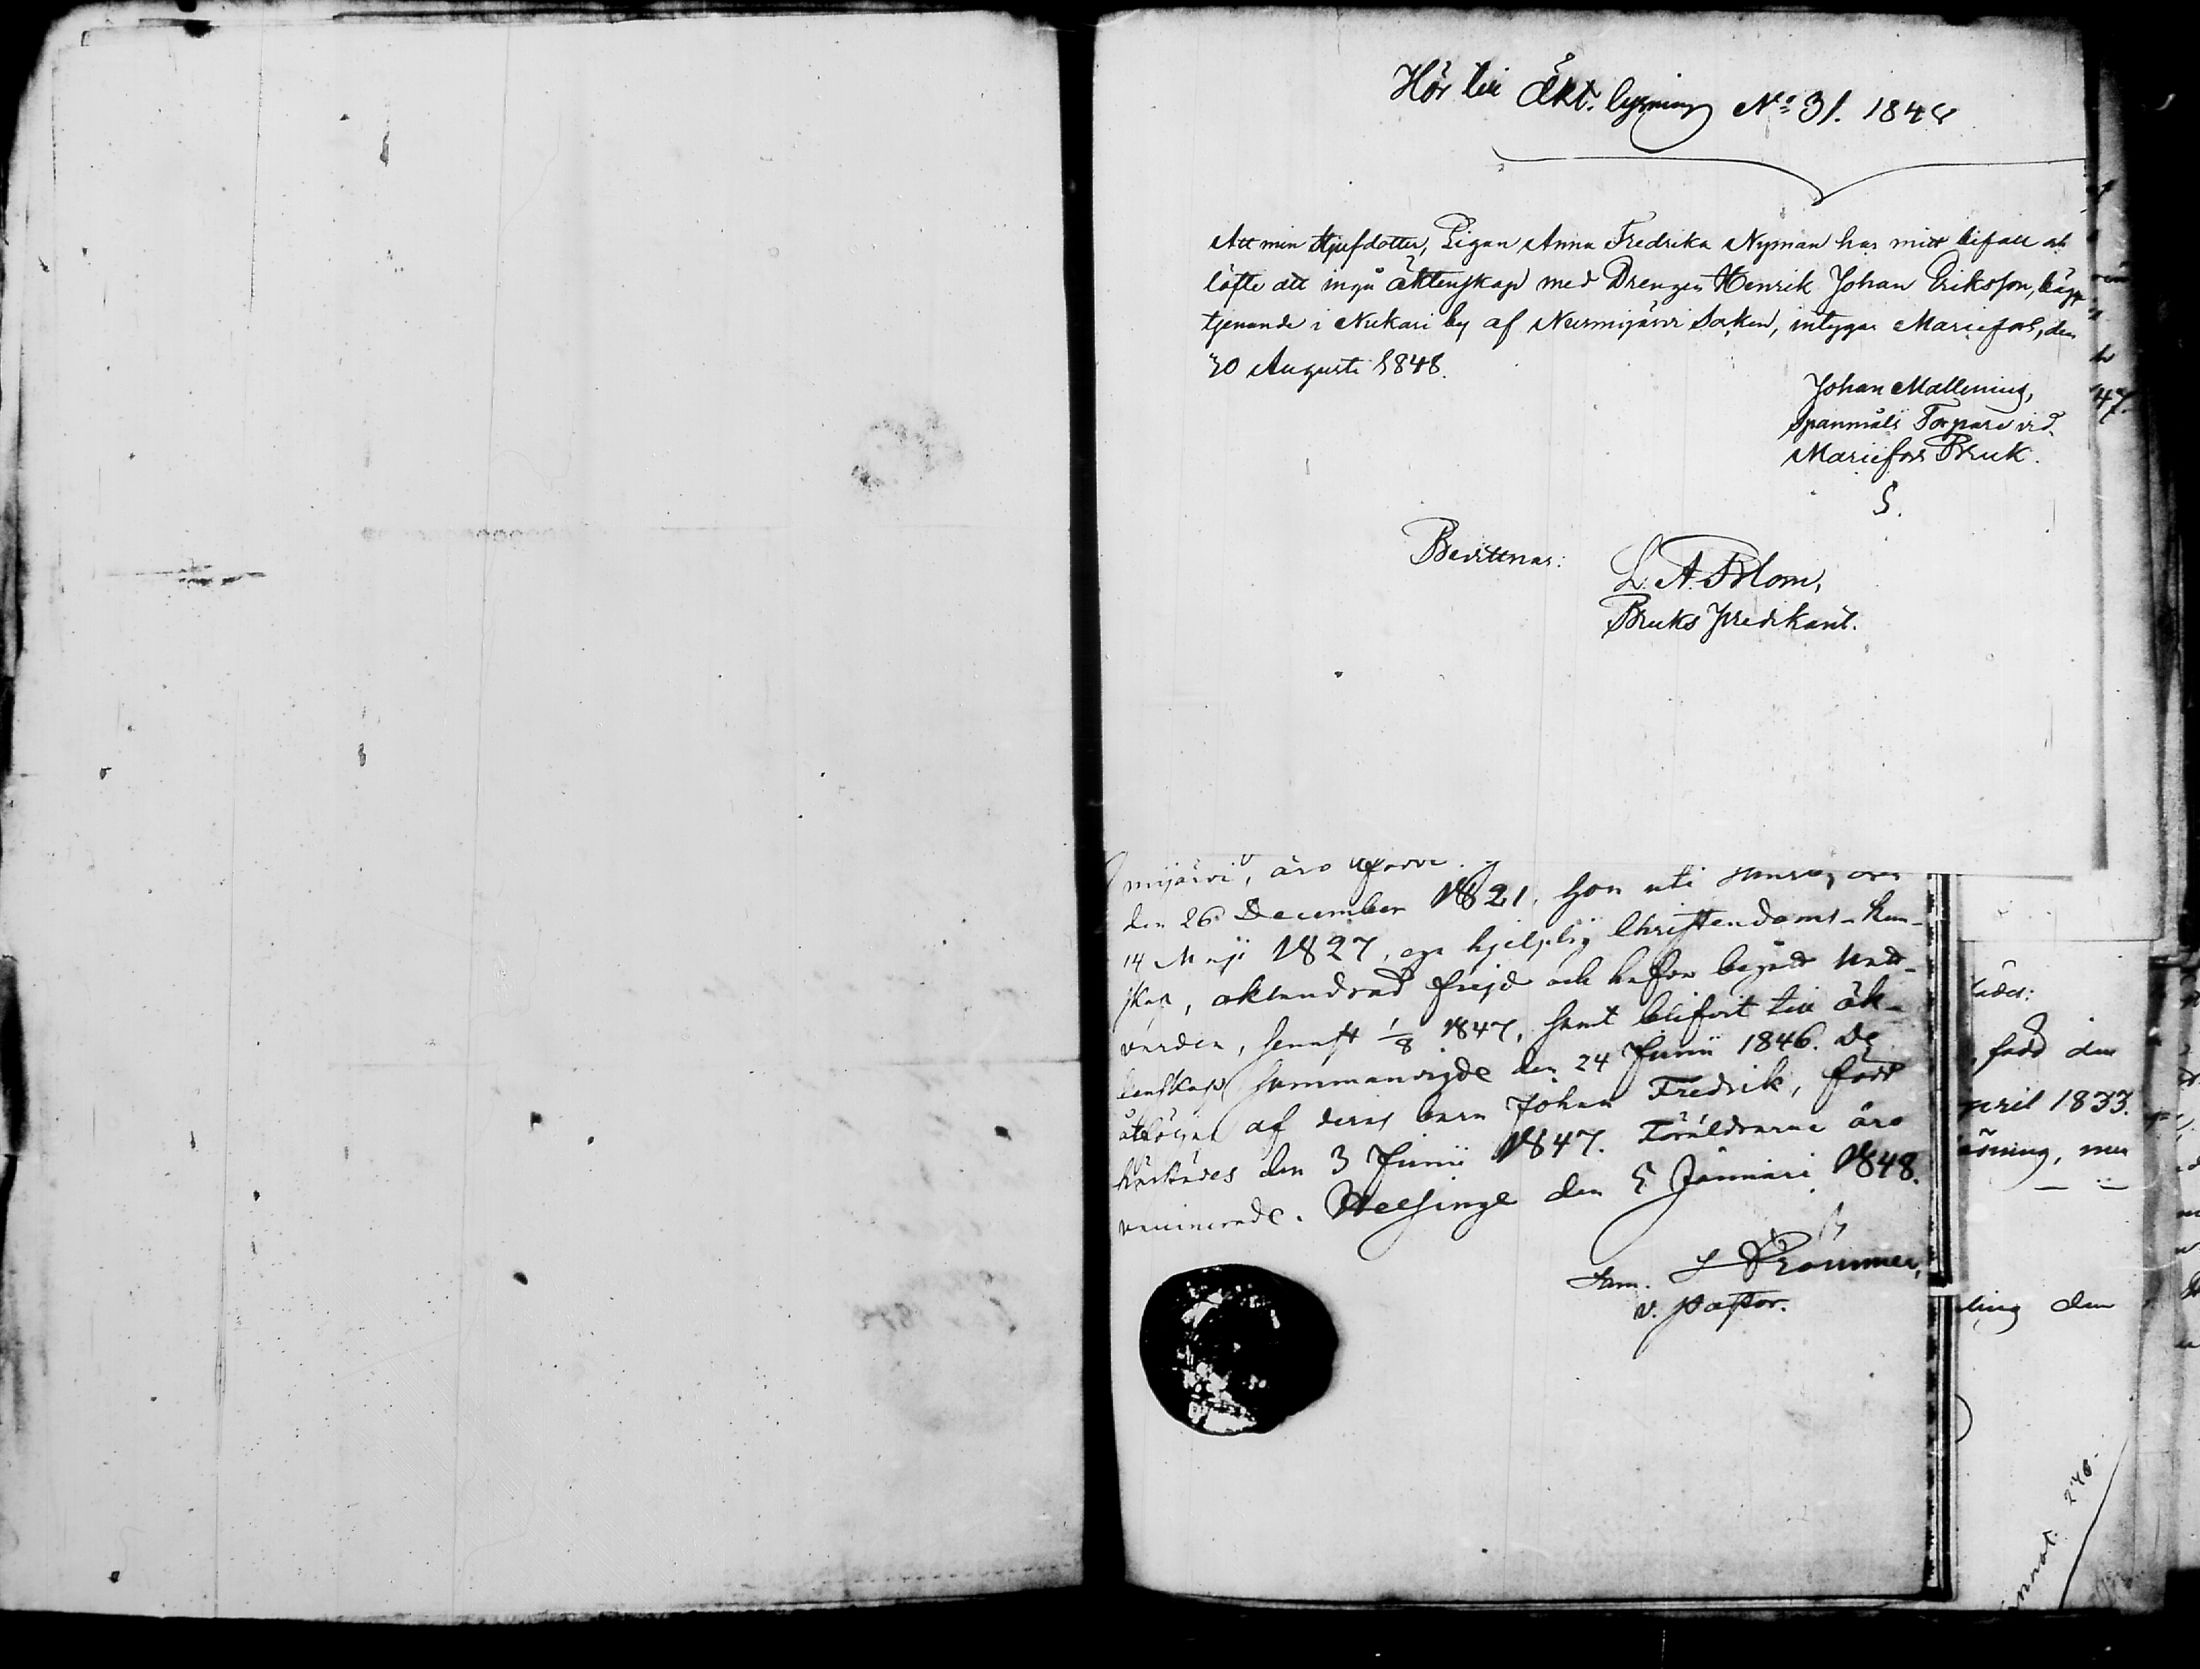 Hör till Äkt. lysning No 31. 1848
Att min Styfdotter, Pigan Anna Fredrika Nyman har mitt bifall och
löfte att ingå äktenskap med Drengen Henrik Johan Eriksson, bägge
tjenande i Nukari by af Nurmijärvi Socken, intygar Mariefors, den
30 Augusti 1848.
Johan Mallenius,
Spanmåls Torpare vid
Mariefors Bruk.
Bevittnar:
L. A. Blom,
Bruks Predikant.
mijärvi, äro
den 26 December 1821, hon uti
14 Maji 1827, ega hjelplig Christendoms-kun-
skap, oklandrad frejd och hafva begått Natt-
varden, senast 1/8 1847, samt blifvit till äk-
tenskap sammanvigde den 24 Junii 1846. De
åtföljas af deras barn Johan Fredrik, född
härstädes den 3 Junii 1847. Föräldrarne äro
vaccinerade. Helsinge den 5 Januari 1848.
v. Pastor.
, född den
april 1833.
ling den